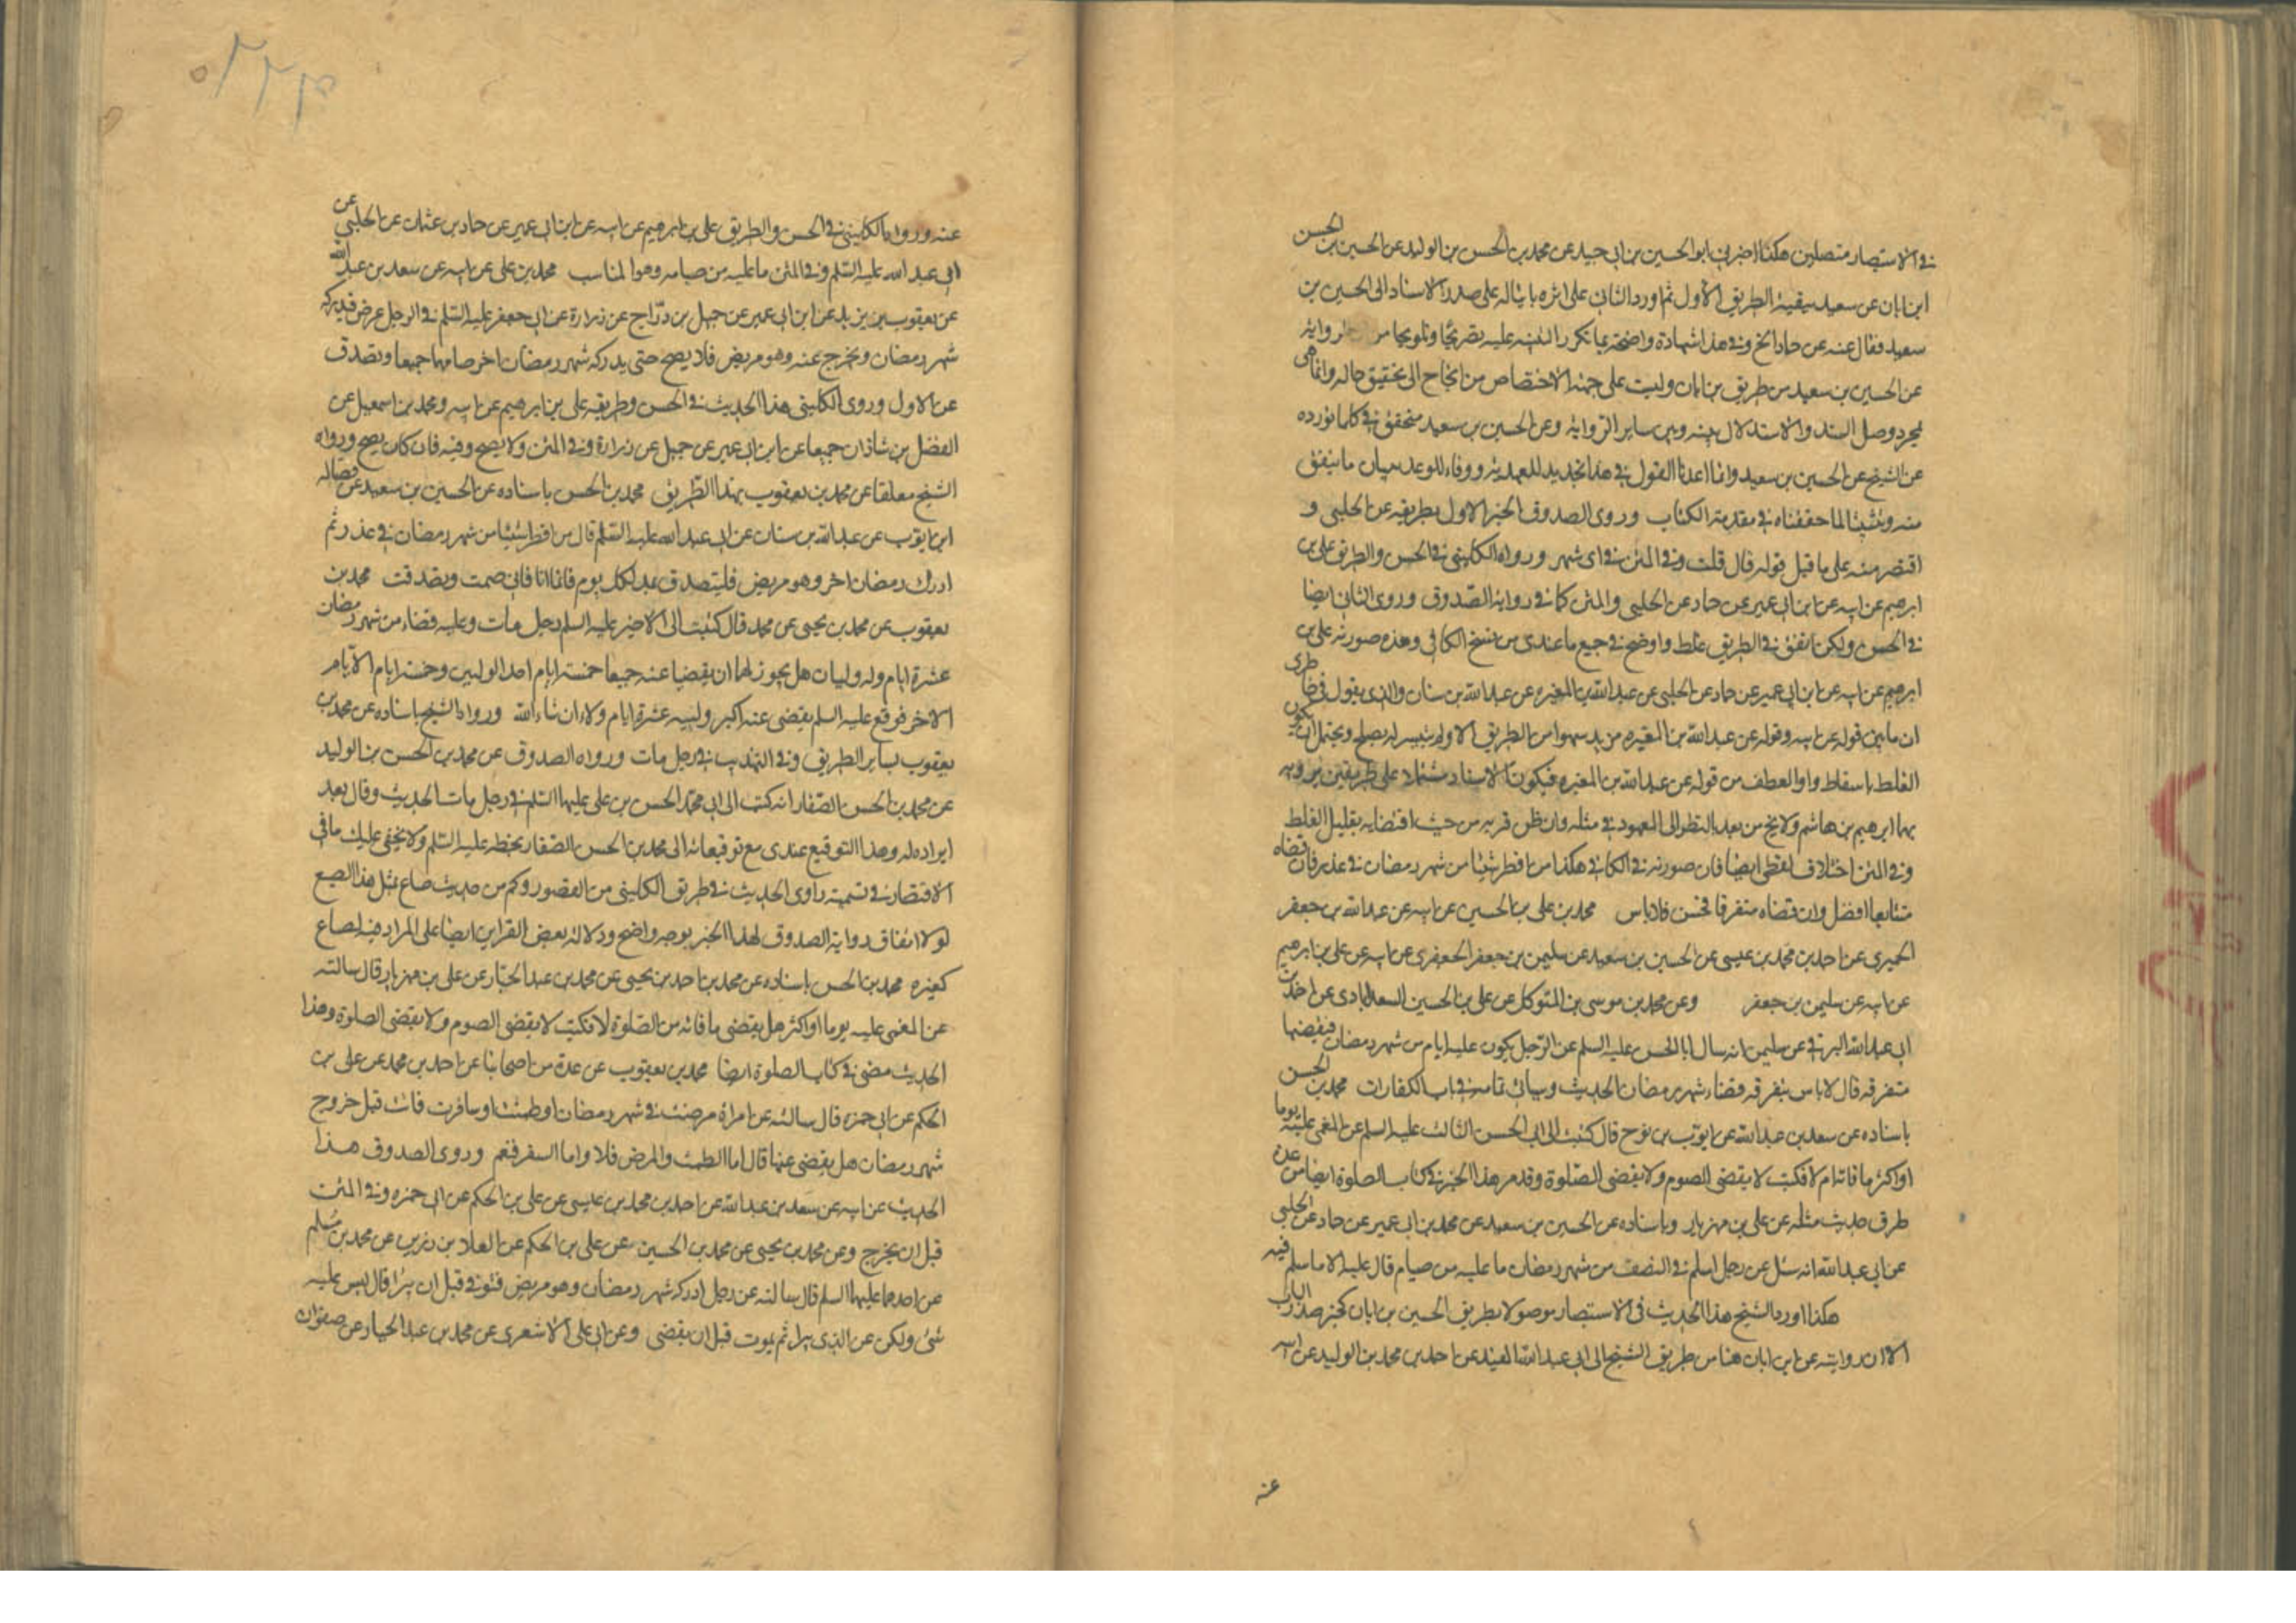 في الاستبصار متصلين هكذا اخبرني ابو الحسين بن ابي جيد عن محمد بن الحسن بن الوليد عن الحسين بن الحسن
ابن ابان عن سعيد ببقية الطريق الاول ثم اورد الثاني على اثره باحالة على صدر الاسناد الى الحسين بن
سعيد فقال عنه عن حماد الخ وفي هذا شهادة واضحة بما تكرر التنبيه عليه تصريحا وتلويحا من رواية
عن الحسين بن سعيد من طريق بن ابان وليست على جهة الاختصاص من ابحاج الى تحقيق حاله وانما هي
لمجرد وصل السند والاستدلال بينه وبين ساير الرواية وعن الحسين بن سعيد متحقق في كلما نورده
عن الشيخ عن الحسين بن سعيد وانما اعدنا القول في هذا تجديد للعهد به ووفاء للوعد ببيان ما يتفق
منه وتثبيتا لما حققناه في مقدمة الكتاب وروى الصدوق الخبر الاول بطريقه عن الحلبي و
اقتصر منه على ما قبل قوله قال قلت وفي المتن في اى شهر ورواه الكليني في الحسن والطريق على بن
ابرهيم عن ابيه عن ابن ابي عمير عن حماد عن الحلبي والمتن كما في رواية الصدوق وروى الثاني ايضا
في الحسن ولكن اتفق في الطريق غلط واوضح في جميع ما عندى من نسخ الكافي وهذه صورته على بن
ابرهيم عن ابيه عن ابن ابي عمير عن حماد عن الحلبي عن عبد الله بن المغيره عن عبد الله بن سنان والذى يقول في خاطرى
ان ما بين قوله عن ابيه وقوله عن عبد الله بن المغيره مزيد سهوا من الطريق الاول ليصلح ويحتمل ان يكون
الغلط باسقاط واو العطف من قوله عن عبد الله بن المغيره فيكون الاسناد مشتملا على طريقين يرويه
بهما ابرهيم بن هاشم ولا يخ من بعد بالنظر الى المعهود في مثله وان ظن قربه من حيث اقتضايه بقليل الغلط
وفي المتن اختلاف لفظي ايضا فان صورته في الكافي هكذا من افطر شيئا من شهر رمضان في عذر فان قضاه
متتابعا افضل وان قضاه متفرقا فحسن فلا باس محمد بن على بن الحسين عن ابيه عن عبد الله بن جعفر
الحميرى عن احمد بن محمد بن عيسى عن الحسين بن سعيد عن سليمن بن جعفر الجعفرى عن ابيه عن على بن ابرهيم
عن ابيه عن سليمن بن جعفر وعن محمد بن موسى بن المتوكل عن على بن الحسين السعدابادى عن احمد بن
ابي عبد الله البرقي عن سليمن انه سال ابا الحسن عليه السلم عن الرجل يكون عليه ايام من شهر رمضان فيقضيها
متفرقه قال لا باس بتفرقه قضاء شهر رمضان الحديث وسياتي تمامه في باب الكفارات محمد بن الحسن
باسناده عن سعد بن عبد الله عن ايوب بن نوح قال كتبت الى ابى الحسن الثالث عليه السلم عن المغمى عليه يوما
او اكثر ما فاته ام لا فكتب لا يقضى الصوم ولا يقضى الصلوة وقد مر هذا الخبر في كتاب الصلوة ايضا من عدة
طرق حديث مثله عن على بن مهزيار وباسناده عن الحسين بن سعيد عن محمد بن ابي عمير عن حماد عن الحلبي
عن ابي عبد الله انه سئل عن رجل اسلم في النصف من شهر رمضان ما عليه من صيام قال عليه الا ما اسلم فيه
هكذا اورد الشيخ هذا الحديث في الاستبصار موصولا بطريق الحسين بن ابان كخبر صدر الباب
الا ان روايته عن ابن ابان هنا من طريق الشيخ الى ابي عبد الله المفيد عن احمد بن محمد بن الوليد عن ابيه
عنه
عنه ورواه الكليني في الحسن والطريق على بن ابرهيم عن ابيه عن ابن ابي عمير عن حماد بن عثمان عن الحلبي عن
ابي عبد الله عليه السلم وفي المتن ما عليه من صيامه وهو المناسب محمد بن على عن ابيه عن سعد بن عبد الله
عن يعقوب بن يزيد عن ابن ابي عمير عن جميل بن درّاج عن زرارة عن ابي جعفر عليه السلم في الرجل عرض فيدركه
شهر رمضان ويخرج عنه وهو مريض فلا يصح حتى يدركه شهر رمضان اخر صامهما جميعا وتصدق
عن الاول وروى الكليني هذا الحديث في الحسن وطريقه على بن ابرهيم عن ابيه ومحمد بن اسمعيل عن
الفضل بن شاذان جميعا عن ابن ابي عمير عن جميل عن زرارة وفي المتن ولا يصح وفيه فان كان يصح ورواه
الشيخ معلقا عن محمد بن يعقوب بهذا الطريق محمد بن الحسن باسناده عن الحسين بن سعيد عن فضاله
ابن ايوب عن عبد الله بن سنان عن ابي عبد الله عليه السلم قال من افطر شيئا من شهر رمضان في عذر ثم
ادرك رمضان اخر وهو مريض فليتصدق بمد لكل يوم فاما انا فاني صمت وتصدقت محمد بن
يعقوب عن محمد بن يحيى عن محمد قال كتبت الى الاخير عليه السلم رجل مات وعليه قضاء من شهر رمضان
عشرة ايام وله وليان هل يجوز لهما ان يقضيا عنه جميعا خمسة ايام احد الوليين وخمسة ايام الايام
الاخر فوقع عليه السلم يقضى عنه اكبر ولييه عشرة ايام ولاء ان شاء الله ورواه الشيخ باسناده عن محمد بن
يعقوب بساير الطريق وفي التهذيب في رجل مات ورواه الصدوق عن محمد بن الحسن بن الوليد
عن محمد بن الحسن الصفار انه كتب الى ابي محمد الحسن بن على عليهما السلم في رجل مات الحديث وقال بعد
ايراده له وهذا التوقيع عندى مع توقيعاته الى محمد بن الحسن الصفار بخطه عليه السلم ولا يخفى عليك ما في
الاقتصار في تسمية راوى الحديث في طريق الكليني من القصور وكم من حديث ضاع بمثل هذا الصنيع
لولا اتفاق رواية الصدوق لهذا الخبر بوجه واضح ودلالة بعض القراين ايضا على المراد فيه لضاع
كغيره محمد بن الحسن باسناده عن محمد بن احمد بن يحيى عن محمد بن عبد الجبار عن على بن مهزيار قال سالته
عن المغمى عليه يوما او اكثر هل يقضى ما فاته من الصلوة لا فكتب لا يقضى الصوم ولا يقضى الصلوة وهذا
الحديث مضى في كتاب الصلوة ايضا محمد بن يعقوب عن عدة من اصحابنا عن احمد بن محمد عن على بن
الحكم عن ابي حمزه قال سالته عن امراة مرضت في شهر رمضان او طمثت او سافرت فماتت قبل خروج
شهر رمضان هل يقضى عنها قال اما الطمث والمرض فلا واما السفر فنعم وروى الصدوق هذا
الحديث عن ابيه عن سعد بن عبد الله عن احمد بن محمد بن عيسى عن على بن الحكم عن ابي حمزه وفي المتن
قبل ان يخرج وعن محمد بن يحيى عن محمد بن الحسين عن على بن الحكم عن العلاء بن رزين عن محمد بن مسلم
عن احدهما عليهما السلم قال سالته عن رجل ادركه شهر رمضان وهو مريض فتوفي قبل ان يبرا قال ليس عليه
شئ ولكن عن الذى يبرا ثم يموت قبل ان يقضى وعن ابي على الاشعرى عن محمد بن عبد الجبار عن صفوان